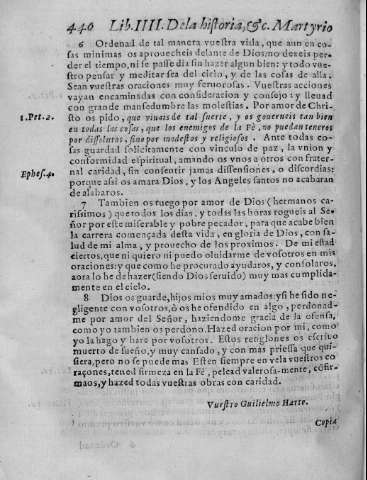 440 Lib. IIII. De la historia, &c. Martyrio
6 Ordenad de tal manera vuestra vida, que aun en co-
sas minimas os aprouecheis delante de Dios: no dexeis per-
der el tiempo, ni se passe dia sin hazer algun bien: y todo vue-
stro pensar y meditar sea del cielo, y de las cosas de alla.
Sean vuestras oraciones muy feruorosas. Vuestras acciones
vayan encaminadas con consideracion y consejo: y lleuad
con grande mansedumbre las molestias. Por amor de Chri-
1. Pet. 2. sto os pido, que viuais de tal suerte, y os gouerneis tan bien
en todas las cosas, que los enemigos de la Fè, no puedan teneros
por dissolutos, sino por modestos y religiosos. Ante todas co-
sas guardad solicitamente con vinculo de paz, la vnion y
conformidad espiritual, amando os vnos a otros con frater-
Ephes. 4. nal caridad, sin consentir jamas dissensiones, o discordias:
porque assi os amara Dios, y los Angeles santos no acabaran
de alabaros.
7 Tambien os ruego por amor de Dios (hermanos ca-
rissimos) que todos los dias, y todas las horas rogueis al Se-
ñor por este miserable y pobre pecador, para que acabe bien
la carrera començada desta vida, en gloria de Dios, con sa-
lud de mi alma, y prouecho de los proximos. De mi estad
ciertos, que ni quiero ni puedo oluidarme de vosotros en mis
oraciones: y que como he procurado ayudaros, y consolaros,
aora lo he de hazer (siendo Dios seruido) muy mas cumplida-
mente en el cielo.
8 Dios os guarde, hijos mios muy amados: y si he sido ne-
gligente con vosotros, ò os he ofendido en algo, perdonad-
me por amor del Señor, haziendome gracia de la ofensa,
como yo tambien os perdono. Hazed oracion por mi, como
yo la hago y hare por vosotros. Estos renglones os escriuo
muerto de sueño, y muy cansado, y con mas priessa que qui-
siera, pero no se puede mas. Esten siempre en vela vuestros co-
raçones, tened firmeza en la Fè, pelead valerosa-mente, côfir-
maos, y hazed todas vuestras obras con caridad.
Vuestro Guilielmo Harte.
Copia